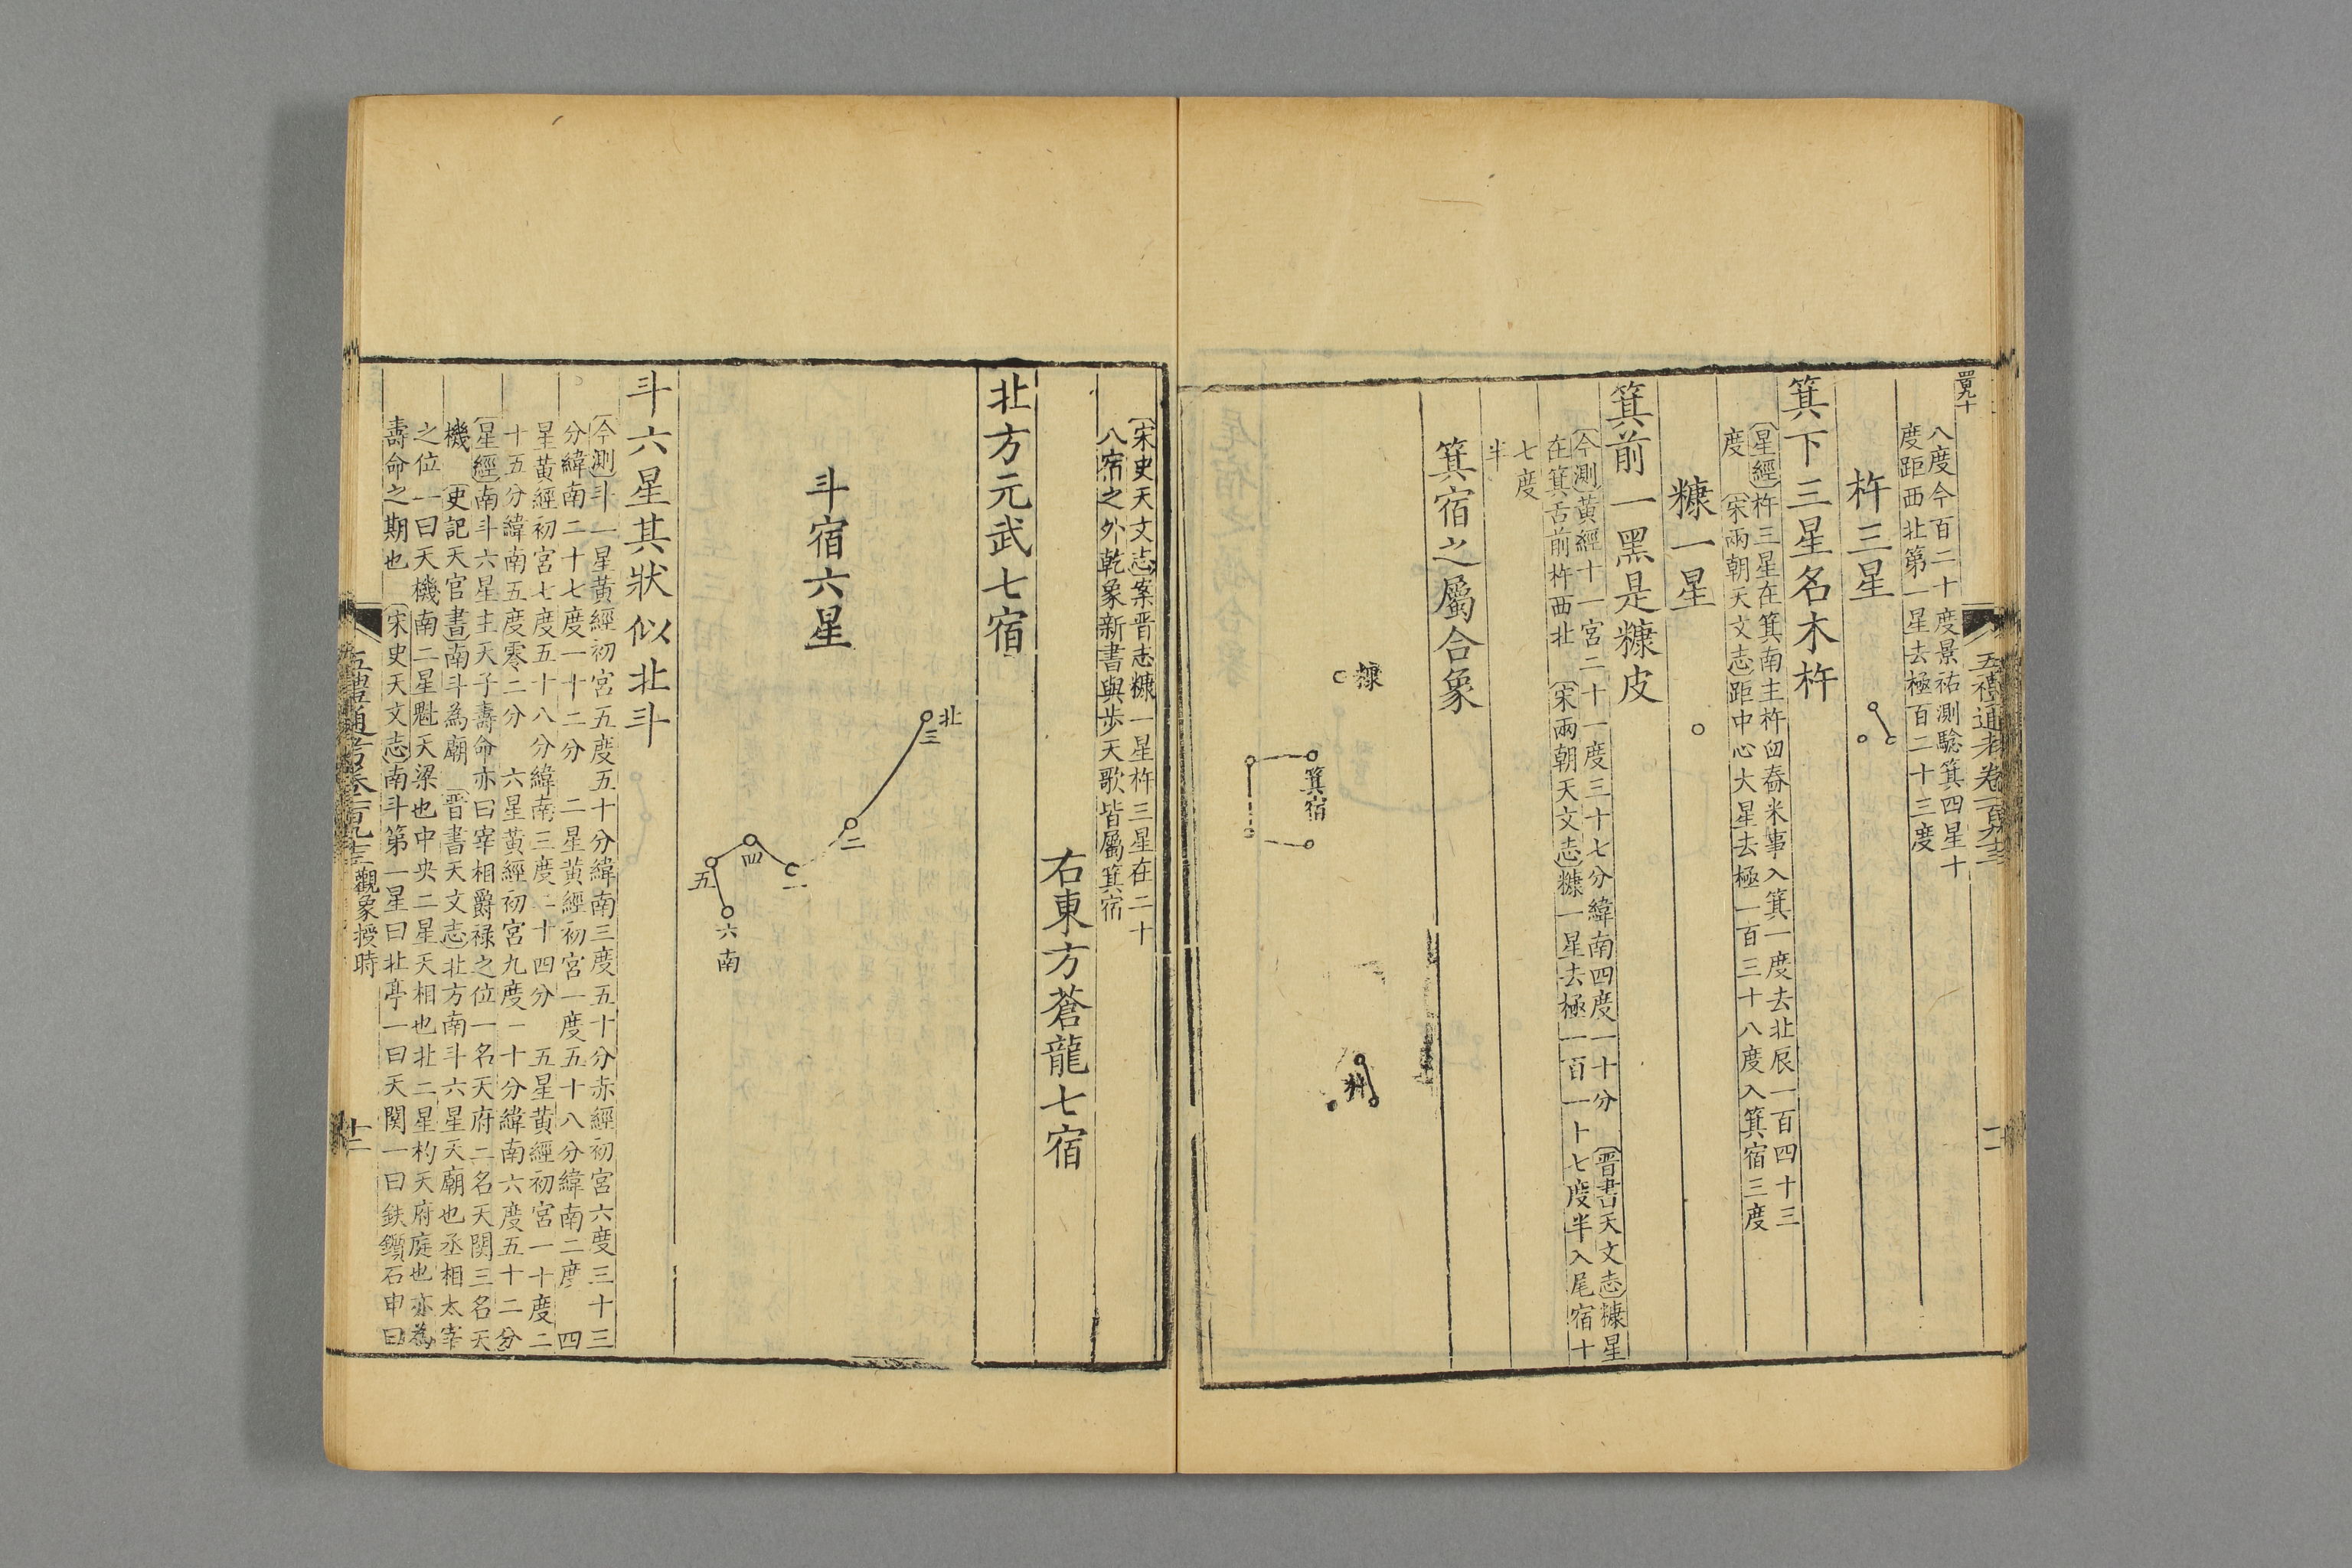 五禮通考卷一百九十三
八度今百二十度景祐測驗箕四星十
度距西北第一星去極百二十三度
杵三星
箕下三星名木杵
〔星經〕杵三星在箕南主杵臼舂米事入箕一度去北辰一百四十三
度 〔宋兩朝天文志〕距中心大星去極一百三十八度入箕宿三度
糠一星
箕前一黑是糠皮
〔今測〕黃經十一宮二十一度三十七分緯南四度一十分 〔晉書天文志〕糠星
在箕舌前杵西北 〔宋兩朝天文志〕糠一星去極一百一十七度半入尾宿十
七度
半
箕宿之屬合象
糠
箕宿
杵
〔宋史天文志〕案晉志糠一星杵三星在二十
八宿之外乾象新書與步天歌皆屬箕宿
右東方蒼龍七宿
北方元武七宿
斗宿六星
北
三
二
一
四
五
六
南
斗六星其狀似北斗
〔今測〕斗一星黃經初宮五度五十分緯南三度五十分赤經初宮六度三十三
分緯南二十七度一十二分 二星黃經初宮一度五十八分緯南二度 四
星黃經初宮七度五十八分緯南三度二十四分 五星黃經初宮一十度二
十五分緯南五度零二分 六星黃經初宮九度一十分緯南六度五十二分
〔星經〕南斗六星主天子壽命亦曰宰相爵祿之位一名天府二名天関三名天
機 〔史記天官書〕南斗為廟 〔晉書天文志〕北方南斗六星天廟也丞相太宰
之位一曰天機南二星魁天梁也中央二星天相也北二星杓天府庭也亦為
壽命之期也 〔宋史天文志〕南斗第一星曰北亭一曰天関一曰鈇鑕石申曰
五禮通考卷一百九十三 觀象授時
十二